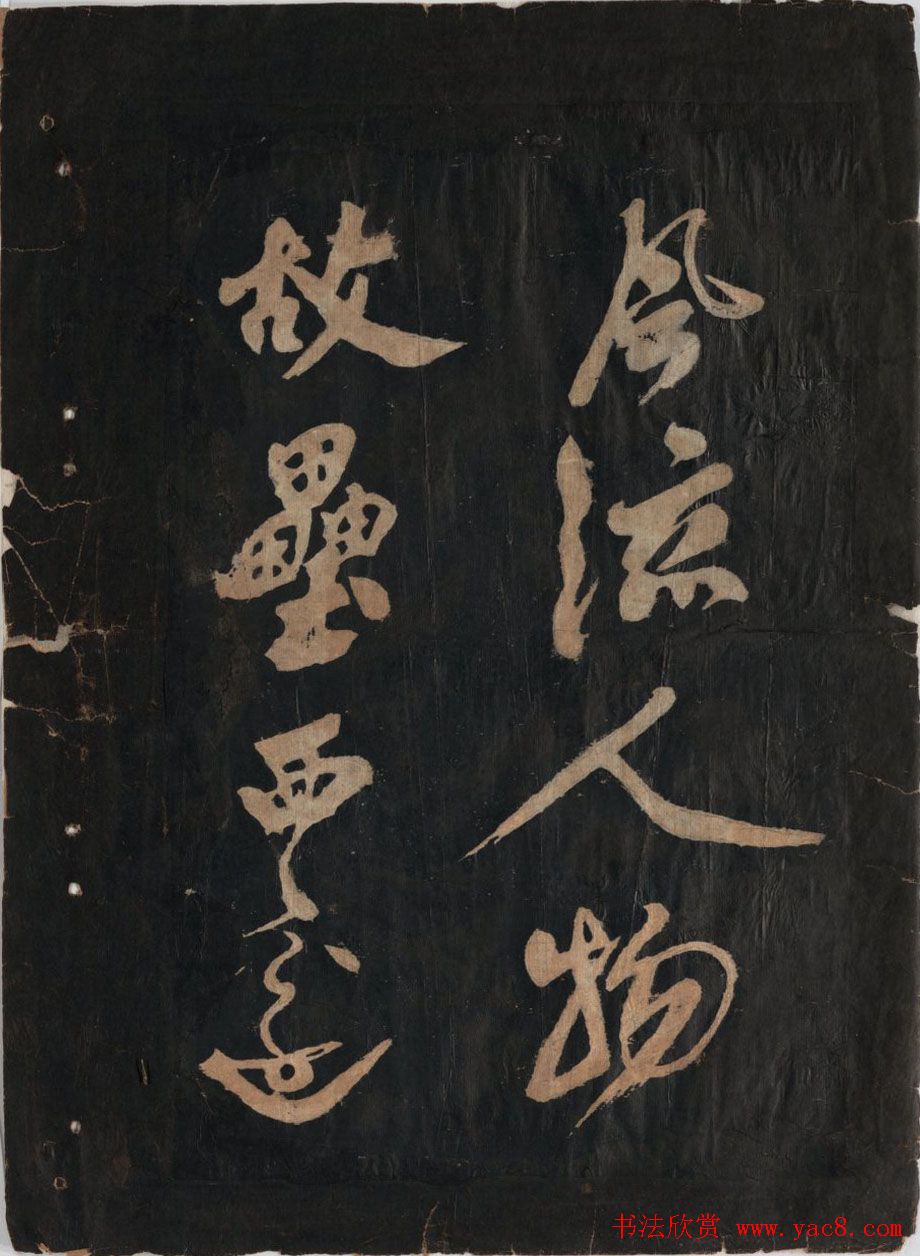 風流人物
故壘西邊
书法欣赏 www.yac8.com